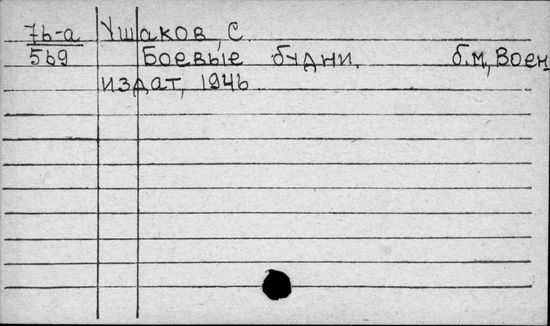 7б-а Ушаков, С.
569 Боевые будни. б.м, Воен
издат, 1946.